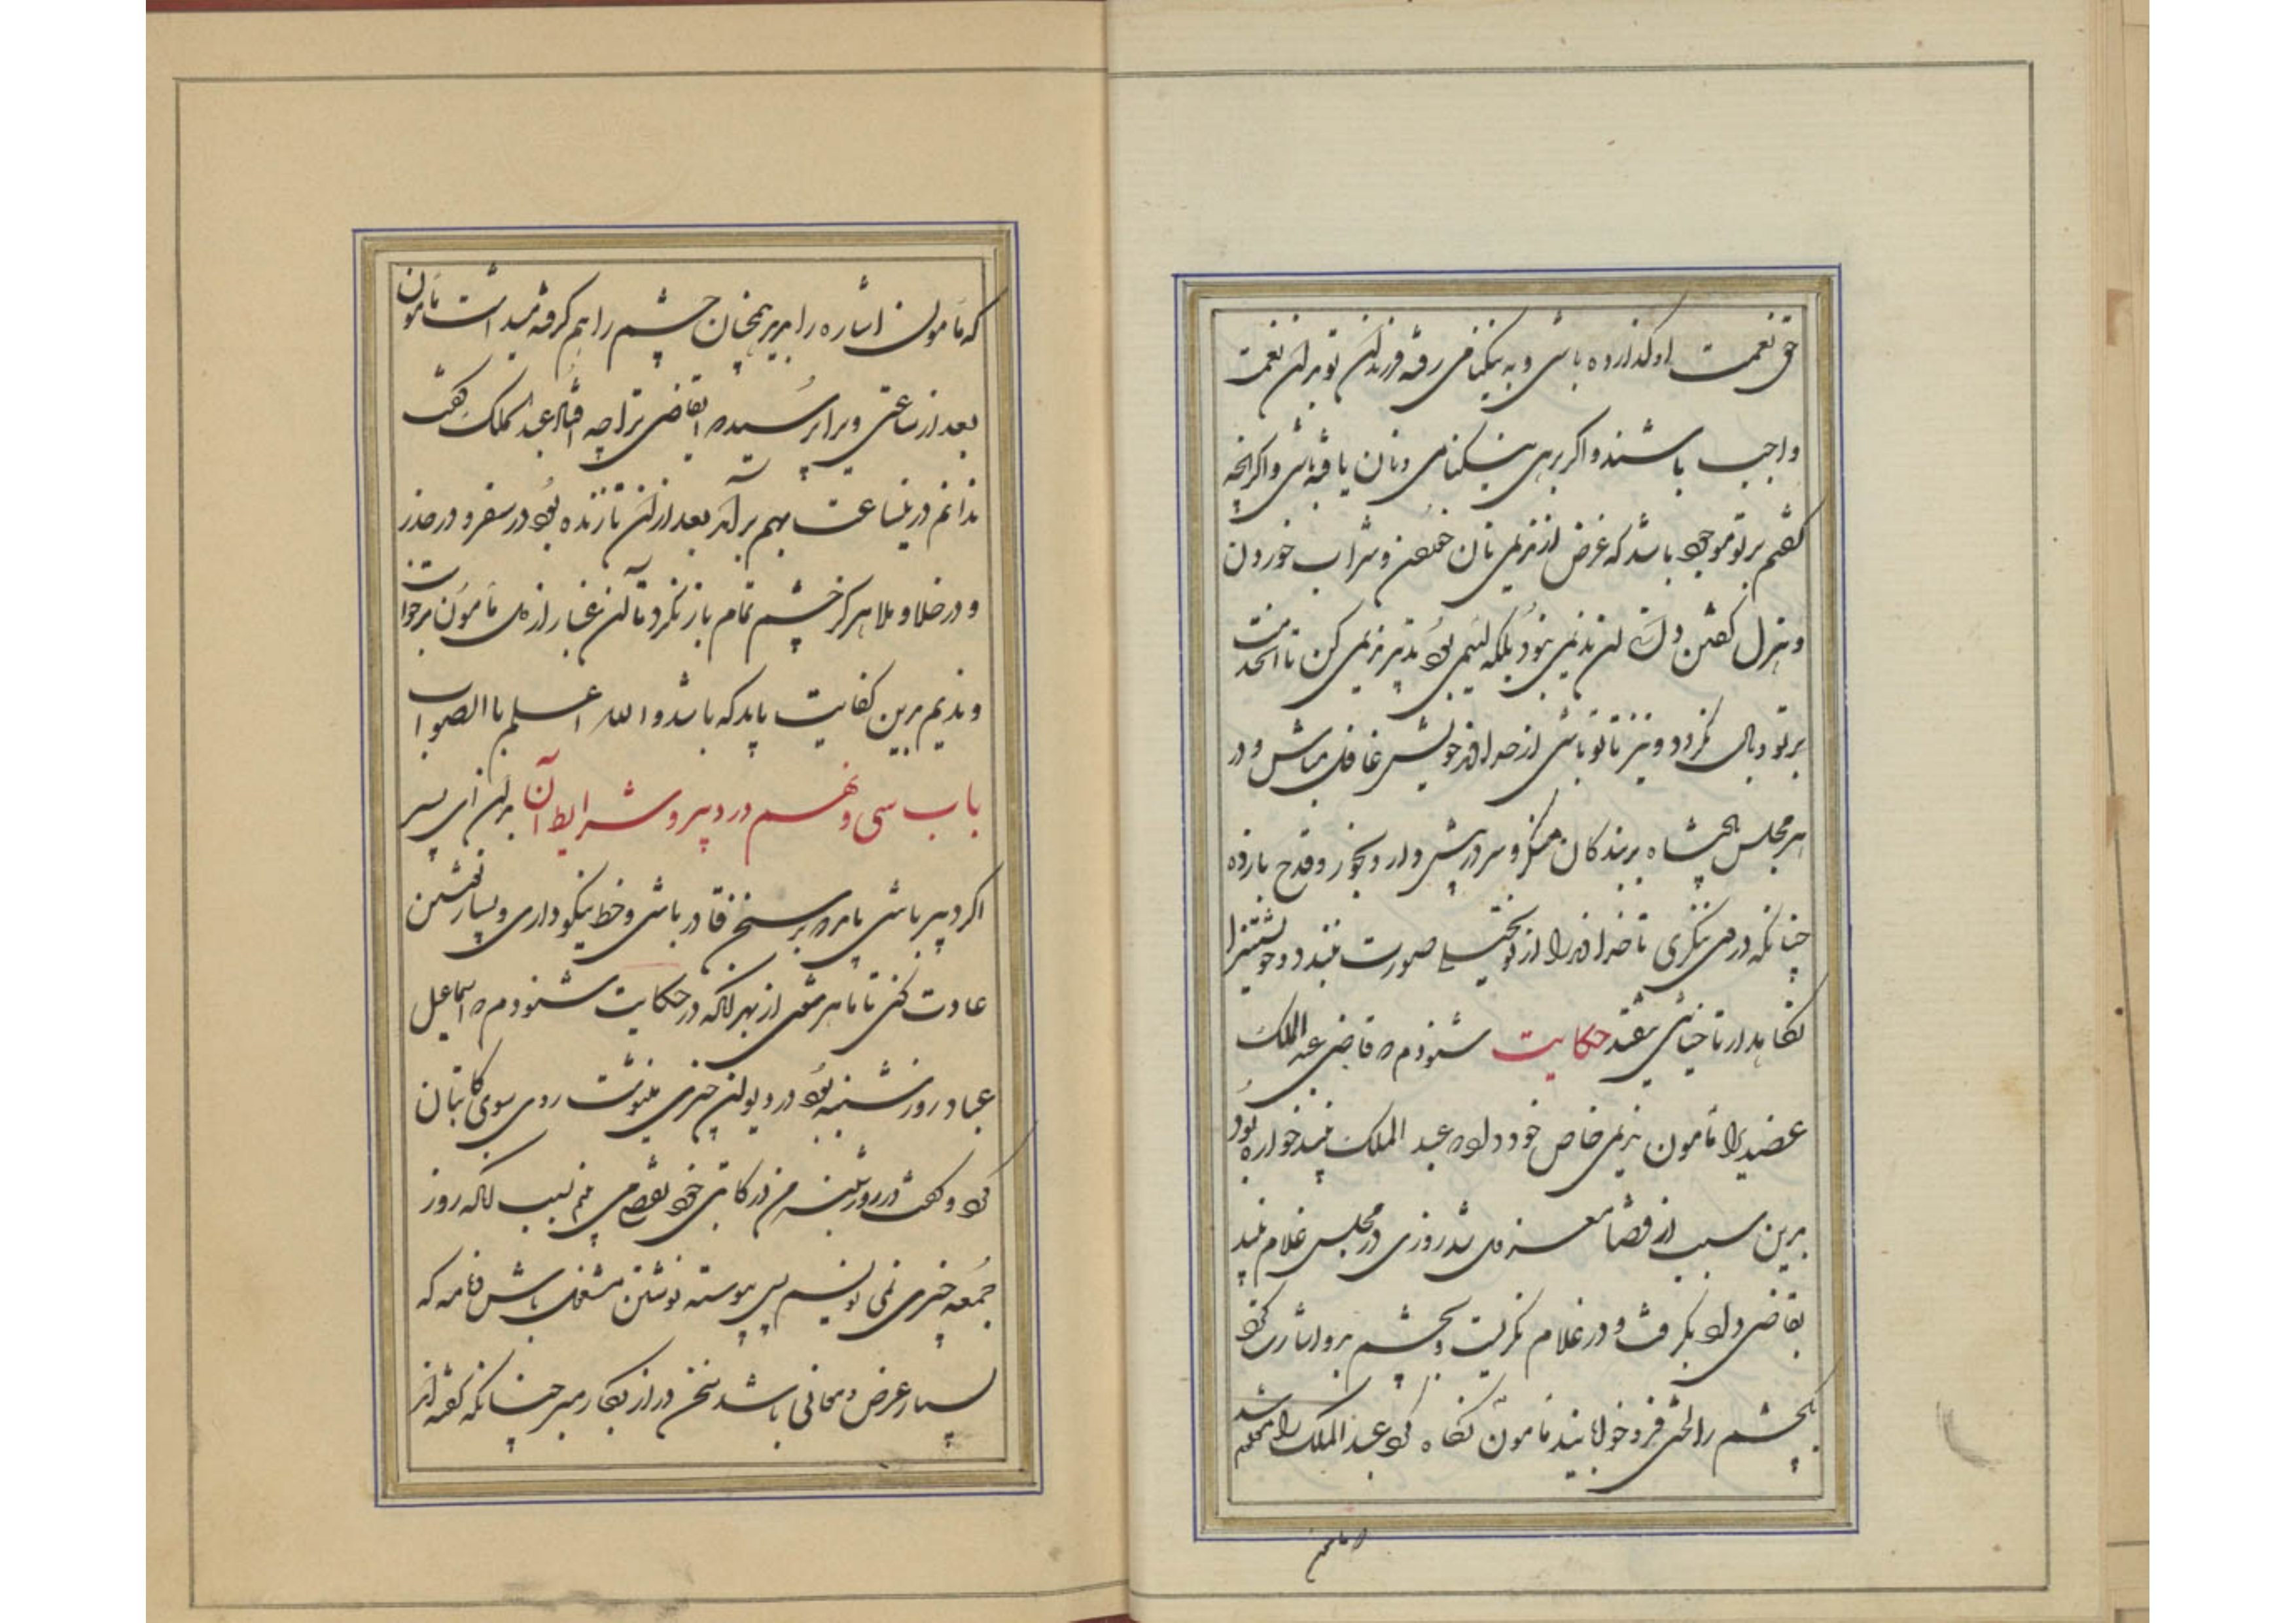 حق نعمت او گذارده باشی و به نیکنامی رفته و فرزندان تو بدان نعمت
واجب باشند و اگر بزی نیکنامی و نان یافته باشی و اگر آنچه
گفتم بر تو موجود باشد که غرض از ندیمی نان خوردن و شراب خوردن
و هزل گفتن و آن ندیمی نبود بلکه لئیمی بود تدبیر ندیمی کن تا آن خدمت
بر تو وبال نگردد و نیز تا تو باشی از خداوند خویش غافل مباش و در
هر مجلس پادشاه بر بندگان منگر و سر در پیش دار و بخور و قدح باز ده
چنانکه در وی ننگری تا خداوند را از تو تخییلی صورت نبندد و خویشتن را
نگاهدار تا خیانتی نیفتد حکایت شنودم که قاضی عبد الملک
عضدیرا مأمون ندیمی خاص خود داد که عبد الملک نبیذ خواره بود
برین سبب از قضا معزول شد روزی در مجلس غلام نبیذ
بقاضی داد بگرفت و در غلام نگریست و بچشم بدو اشارت کرد
چشم را لختی فرو خوابانید مأمون نگاه کرد عبد الملک را معلوم شد
که مأمون اشاره را بدید همچنان چشم را بهم گرفته میداشت مأمون
بعد از ساعتی ویرا پرسید که ایقاضی ترا چه افتاد عبد الملک گفت
ندانم درینساعت بهم برآمد بعد از آن تا زنده بود در سفر و در حضر
و در خلا و ملا هرگز چشم تمام باز نکرد تا آن غبار از دل مأمون برخواست
و ندیم برین کفایت باید که باشد و الله اعلم با الصواب
باب سی و نهم در دبیر و شرایط آن بدان ای پسر
اگر دبیر باشی باید که بر سخن قادر باشی و خط نیکو داری و بسیار نوشتن
عادت کنی تا ماهر شوی از بهر آنکه در حکایت شنودم که اسماعیل
عباد روز شنبه بود در دیوان چیزی مینوشت روی سوی کاتبان
کرد و گفت در روز شنبه من در کاتبی خود نقص می بینم بسبب آنکه روز
جمعه چیزی نمی نویسم پس پیوسته نوشتن مشغول باش و نامه که
بسیار عرض و معانی باشد سخن دراز بکار مبر چنانکه گفته اند